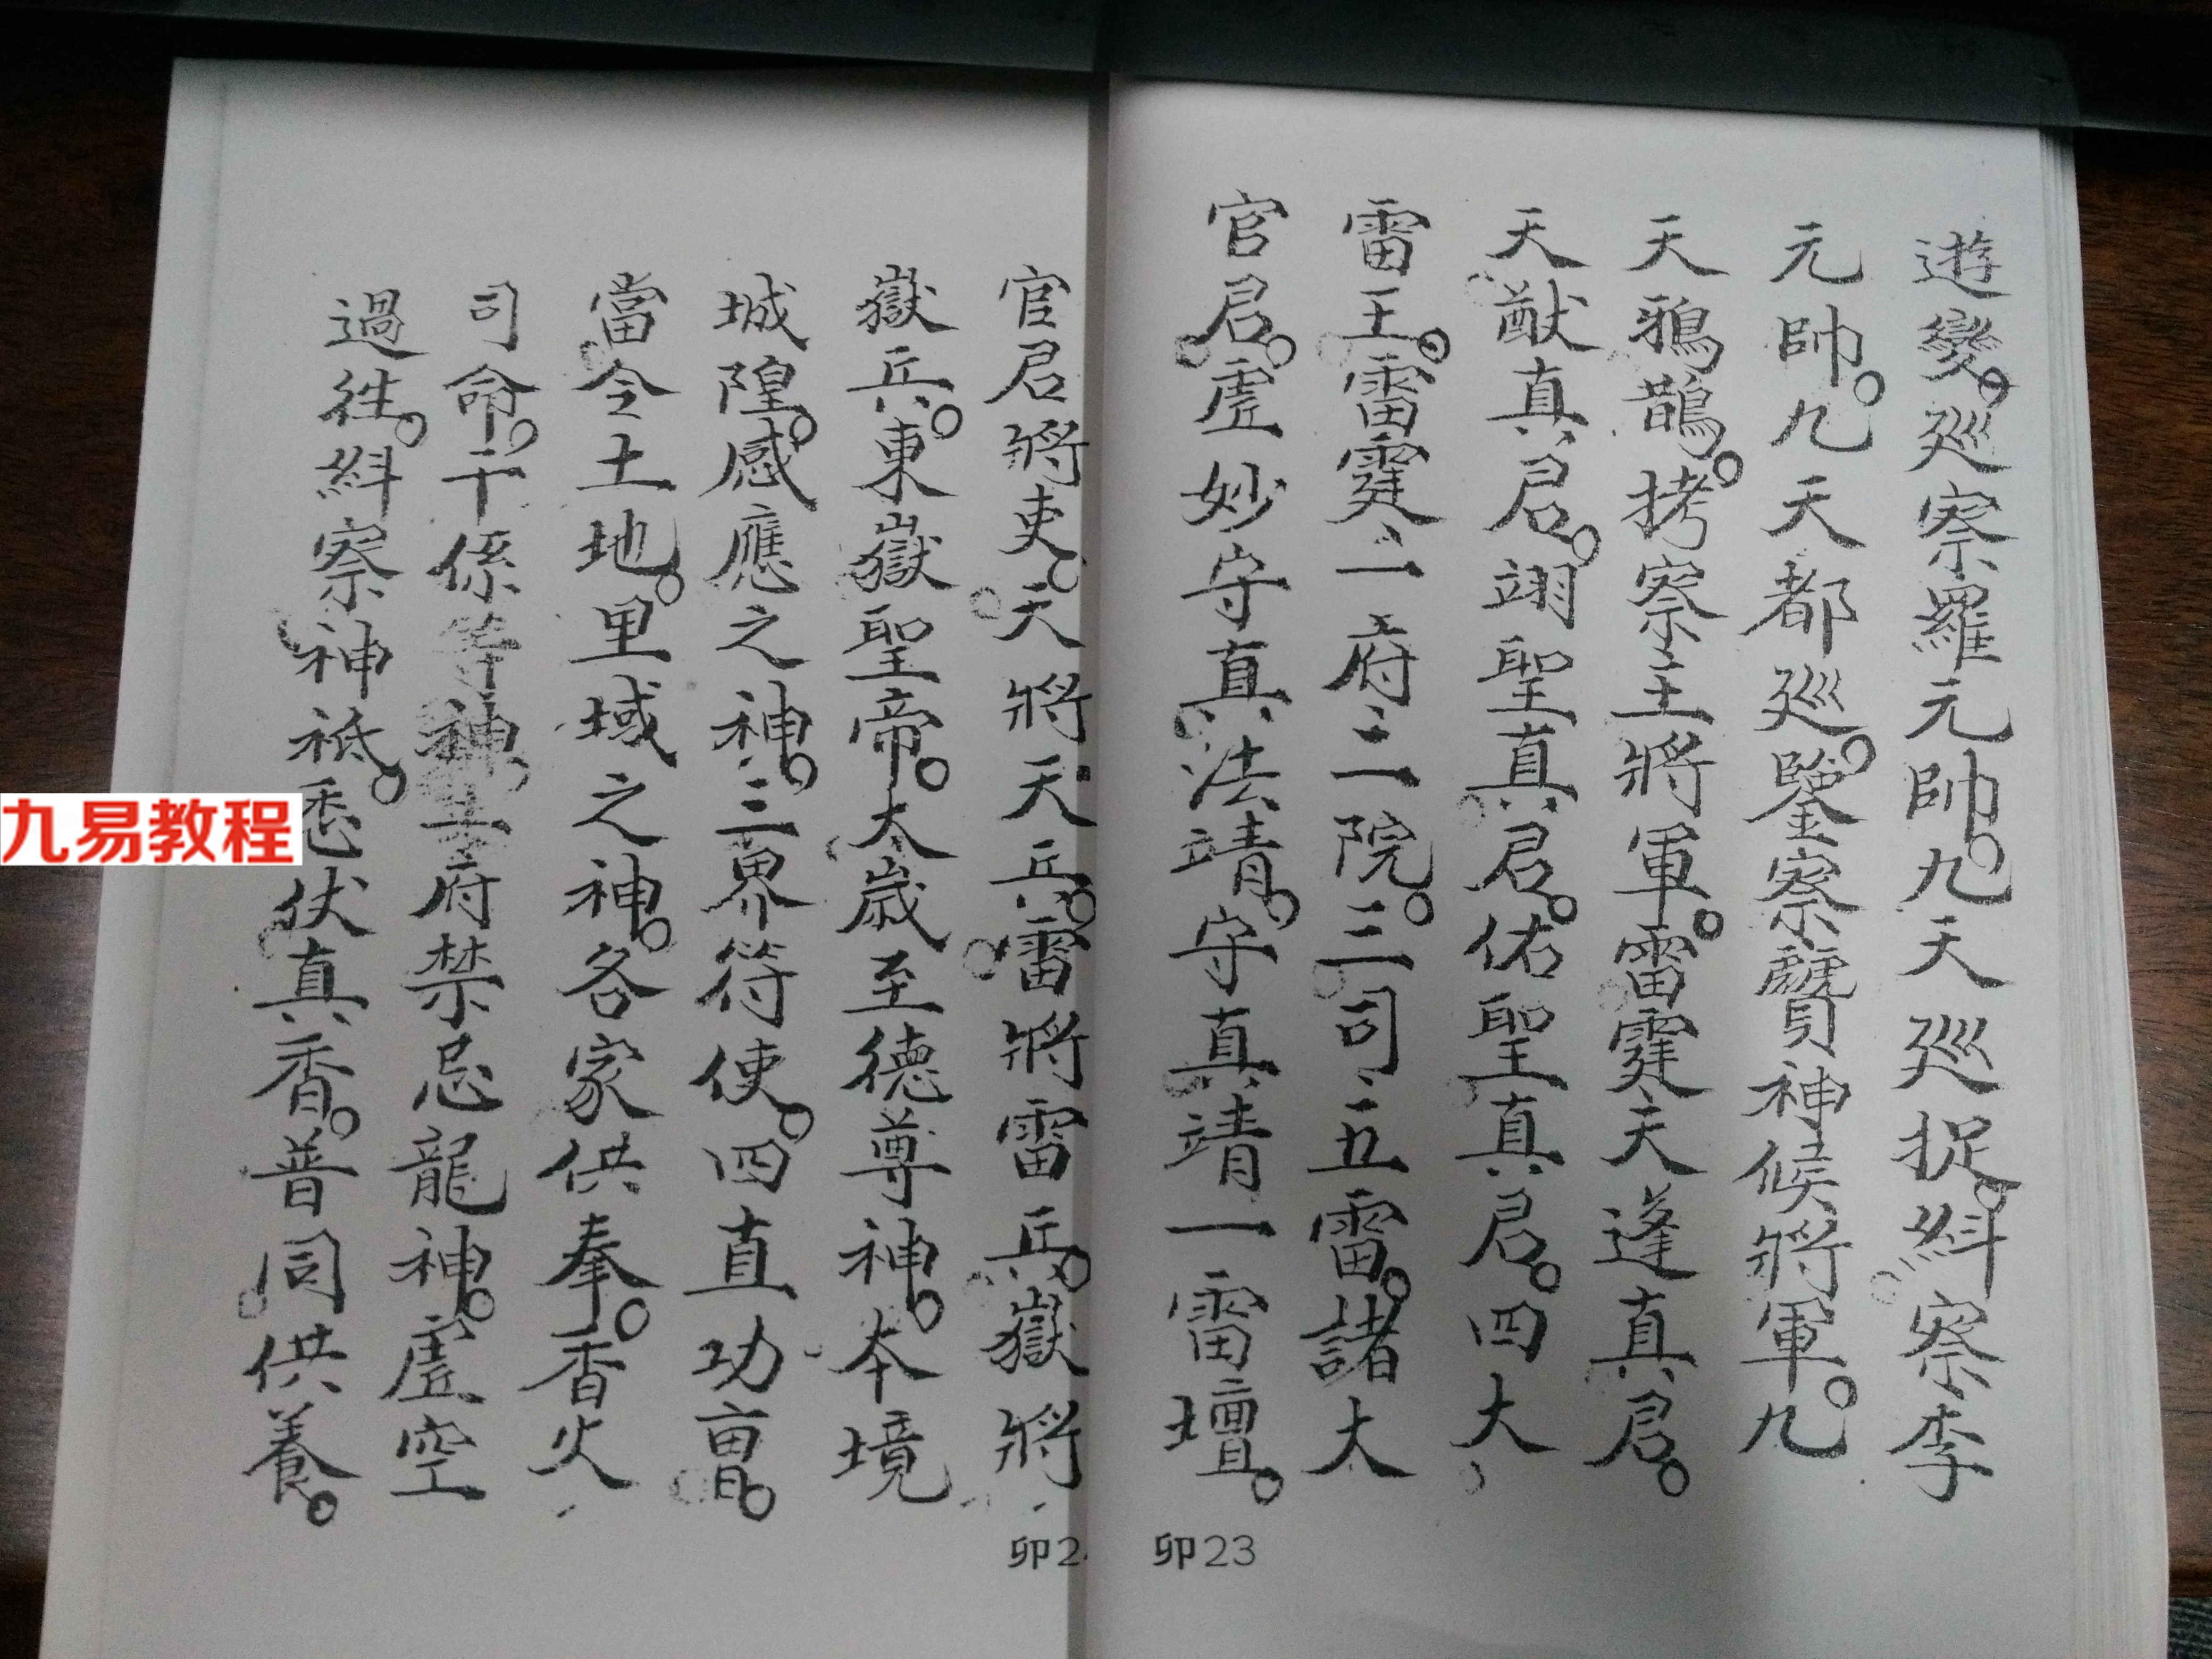 遊變。廵察羅元帥。九天廵捉。糾察李
元帥。九天都廵。鑒察 神候將軍。九
天鴉鵲。拷察主將軍。雷霆天蓬真君。
天猷真君。翊聖真君。佑聖真君。四大
雷王。雷霆一府二院。三司五雷。諸大
官君。虛妙守真法靖。守真靖一雷壇。
卯23
官君將吏。天將天兵。雷將雷兵。嶽將
嶽兵。東嶽聖帝。太歲至德尊神。本境
城隍。感應之神。三界符使。四直功曹。
當今土地。里域之神。各家供奉。香火
司命。干係等神。 府禁忌龍神。虛空
過往。糾察神祇。悉伏真香。普同供養。
卯2
九易教程